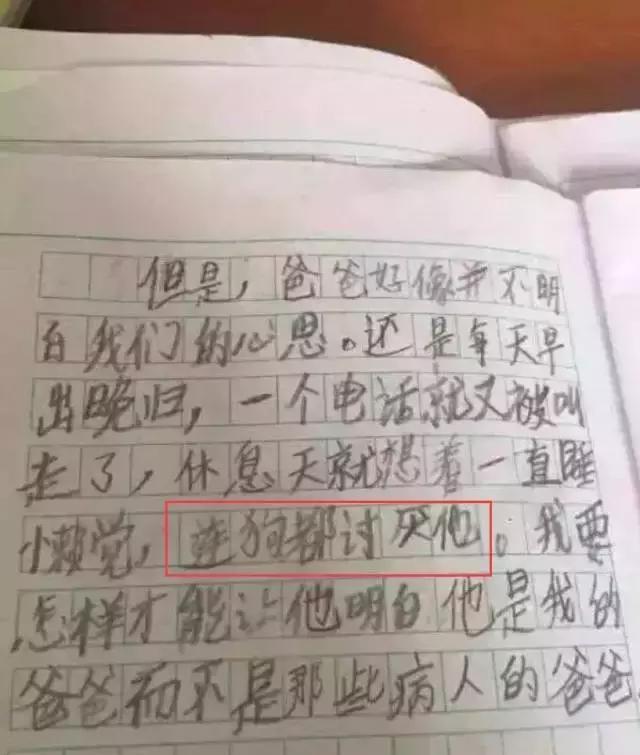 但是，爸爸好像并不明
白我们的心思。还是每天早
出晚归，一个电话就又被叫
走了，休息天就想着一直睡
小懒觉，连狗都讨厌他。我要
怎样才能让他明白他是我的
爸爸而不是那些病人的爸爸